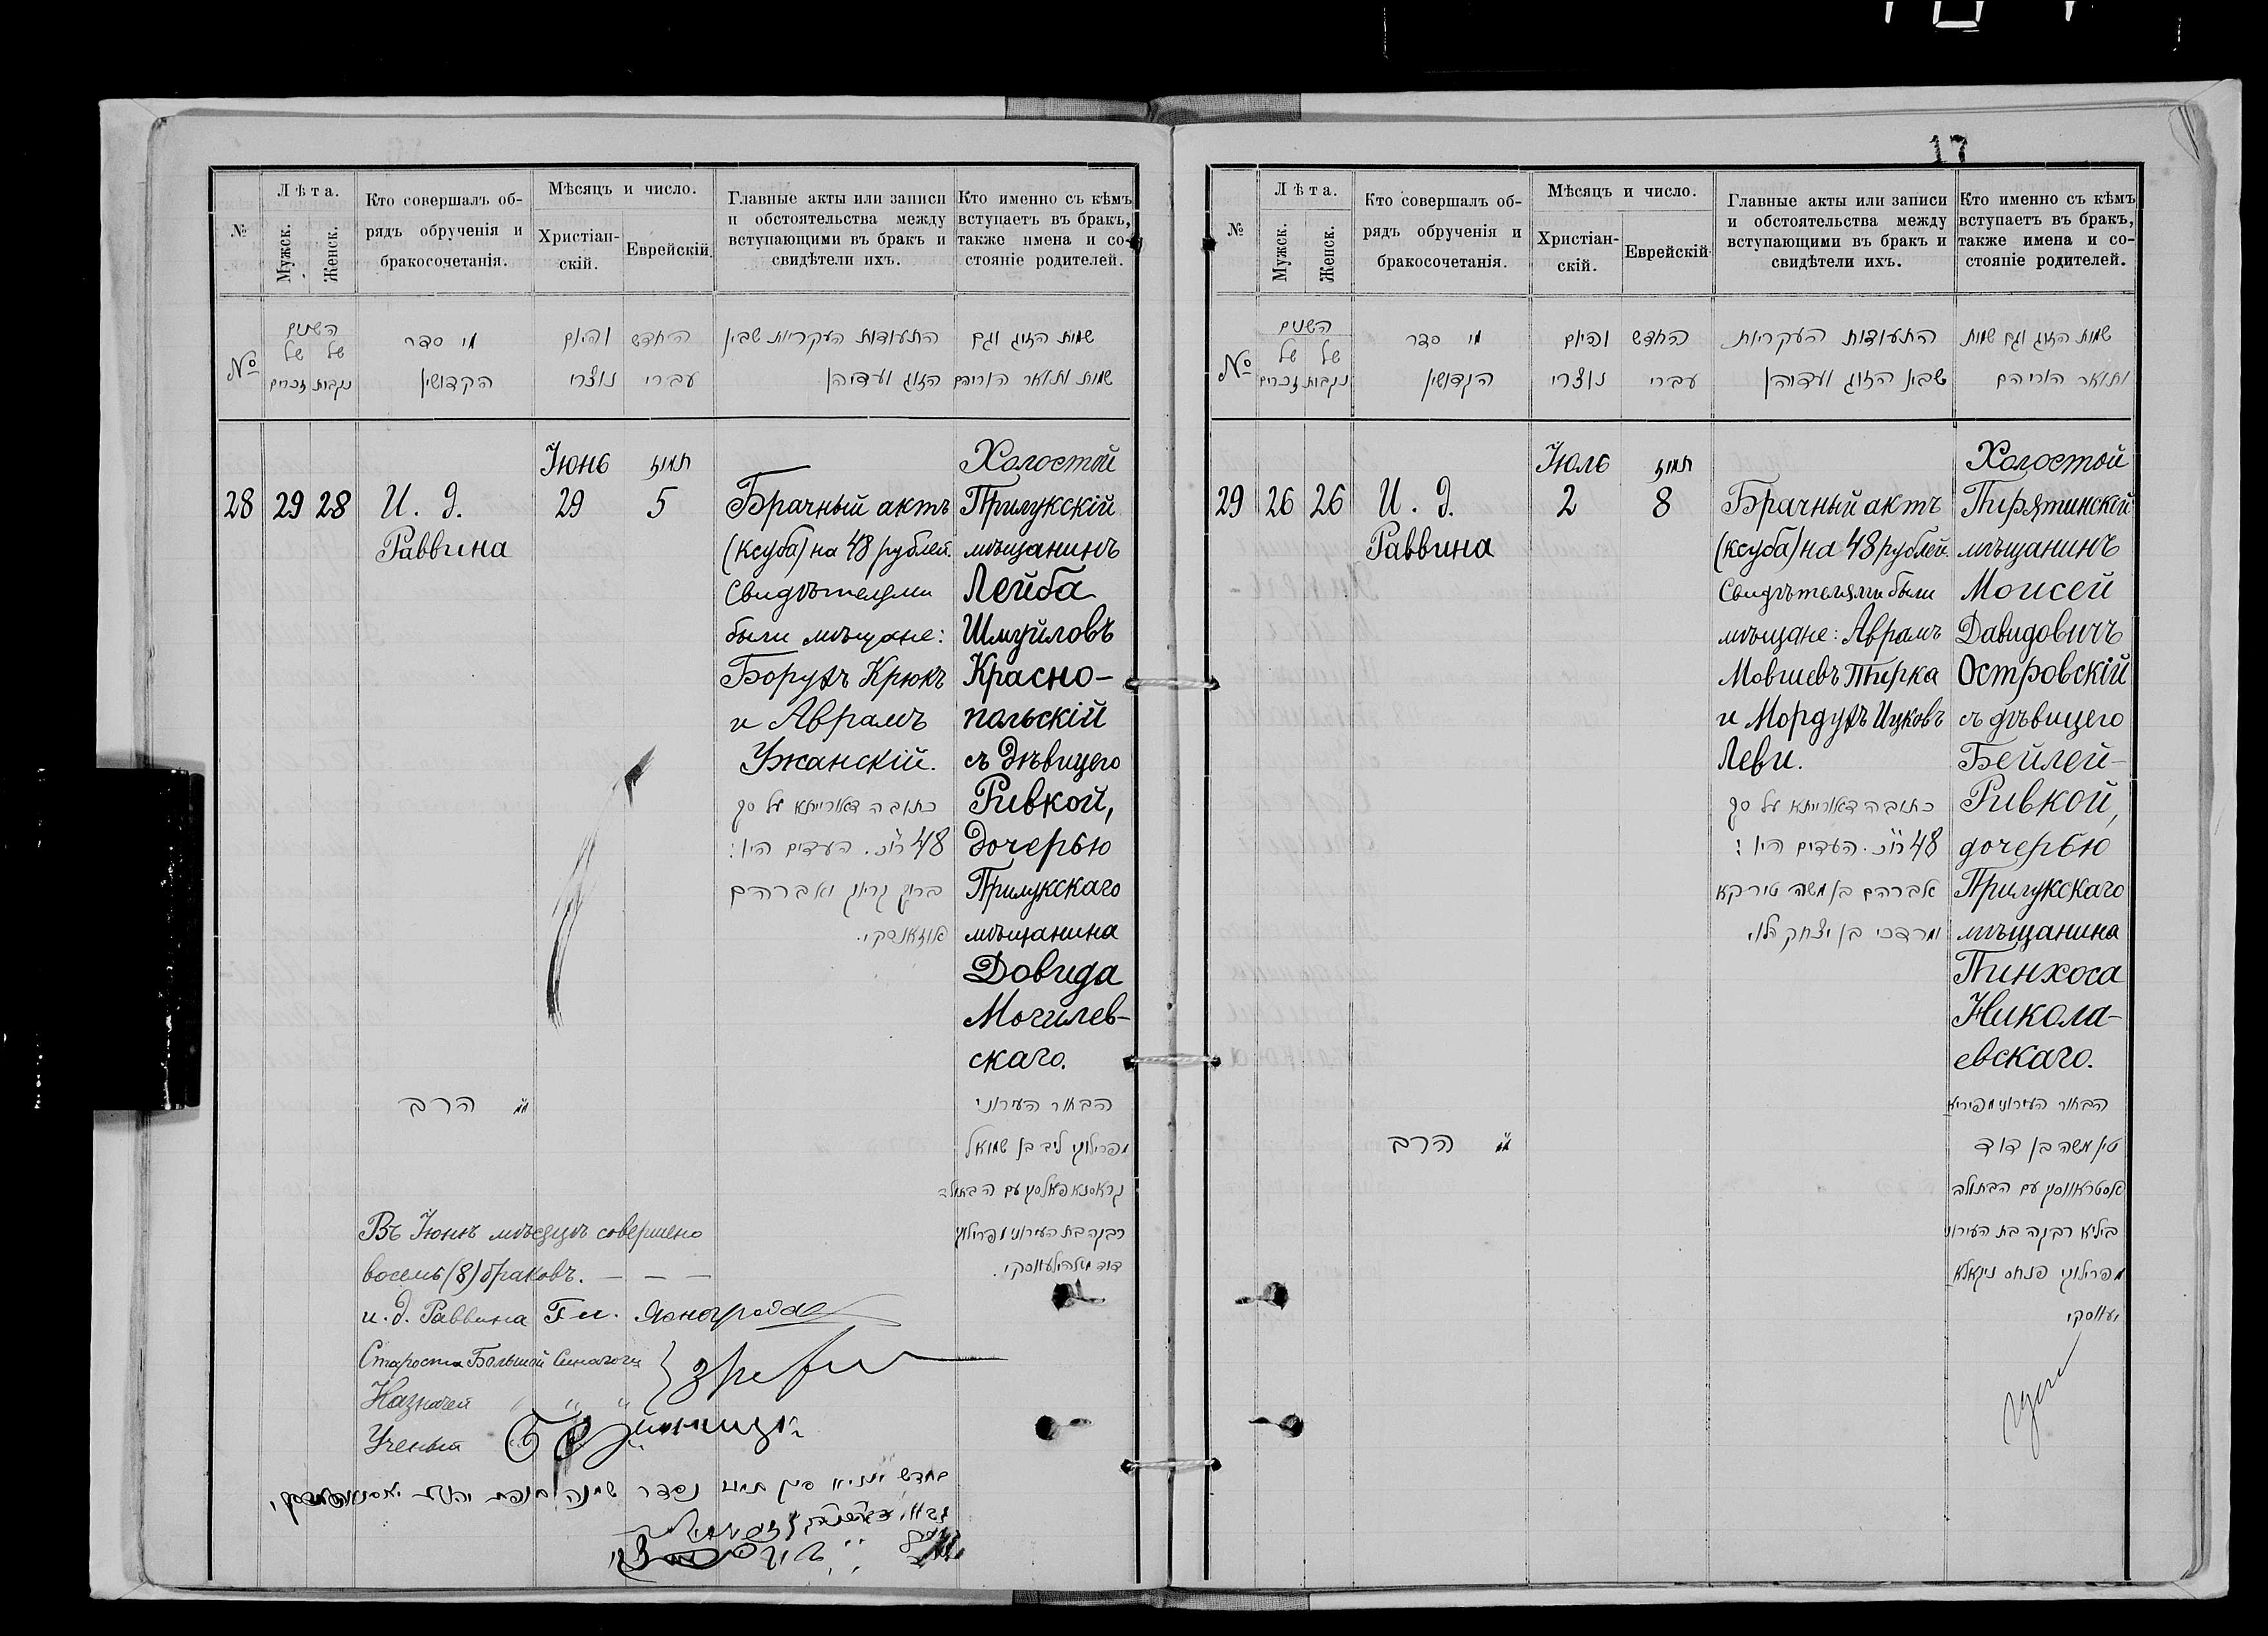 17
№
Лѣта.
Мужск.
Женск.
Кто совершалъ об-
рядъ обрученія и
бракосочетанія.
Мѣсяцъ и число.
Христіан-
скій.
Еврейскій.
Главные акты или записи
и обстоятельства между
вступающими въ бракъ и
свидѣтели ихъ.
Кто именно съ кѣмъ
вступаетъ въ бракъ,
также имена и со-
стояніе родителей.
№
השנים
של של
נקבות זכרים
מי סדר
הקדושין
והיום
נוצרי
החדש
עברי
התעודות העקריות שבין
הזוג ועדיהן
שמות הזוג וגם
שמות ותואר הוריהם
28 29 28
И. д.
Раввина
Іюнь
29
תמוז
5
Брачный актъ
(ксуба) на 48 рублей.
Свидѣтелями
были мѣщане:
Борухъ Крюкъ
и Аврамъ
Ужанскій.
כתובה דאורייתא על סך
48 רו״כ. העדים היו:
ברוך קריוק ואברהם
אוזאנסקי.
Холостой
Прилукскій
мѣщанинъ
Лейба
Шмуйловъ
Красно-
польскій
съ Дѣвицею
Ривкой,
Дочерью
Прилукскаго
мѣщанина
Довида
Могилев-
скаго.
הרב
הבחור העירוני
מפרילוקי ליב בן שמואל
קראסנאפאלסקי עם הבתולה
רבקה בת העירוני מפרילוקי
דוד מאהילעווסקי.
Въ Іюнѣ мѣсяцѣ совершено
восемь (8) браковъ. — — —
и. д. Раввина
Староста Большой Синагоги
Казначей " " "
Ученый
№
Лѣта.
Мужск.
Женск.
Кто совершалъ об-
рядъ обрученія и
бракосочетанія.
Мѣсяцъ и число.
Христіан-
скій.
Еврейскій
Главные акты или записи
и обстоятельства между
вступающими въ бракъ и
свидѣтели ихъ.
Кто именно съ кѣмъ
вступаетъ въ бракъ,
также имена и со-
стояніе родителей.
№
השנים
של של
נקבות זכרים
מי סדר
הקדושין
והיום
נוצרי
החדש
עברי
התעודות העקריות
שבין הזוג ועדיהן
שמות הזוג וגם שמות
ותואר הוריהם
29 26 26
И. д.
Раввина
Іюль
2
תמוז
8
Брачный актъ
(ксуба) на 48 рублей.
Свидѣтелями были
мѣщане: Аврамъ
Мовшевъ Тирка
и Мордухъ Ицковъ
Леви.
כתובה דאורייתא על סך
48 רו״כ. העדים היו:
אברהם בן משה טירקא
ומרדכי בן יצחק הלוי
Холостой
Пирятинскій
мѣщанинъ
Моисей
Давидовичъ
Островскій
съ дѣвицею
Бейлей-
Ривкой,
дочерью
Прилукскаго
мѣщанина
Пинхоса
Никола-
евскаго.
הרב
הבחור העירוני מפיריא
טין משה בן דוד
אסטראווסקי עם הבתולה
ביילא רבקה בת העירוני
מפרילוקי פנחס ניקאלא
יעווסקי